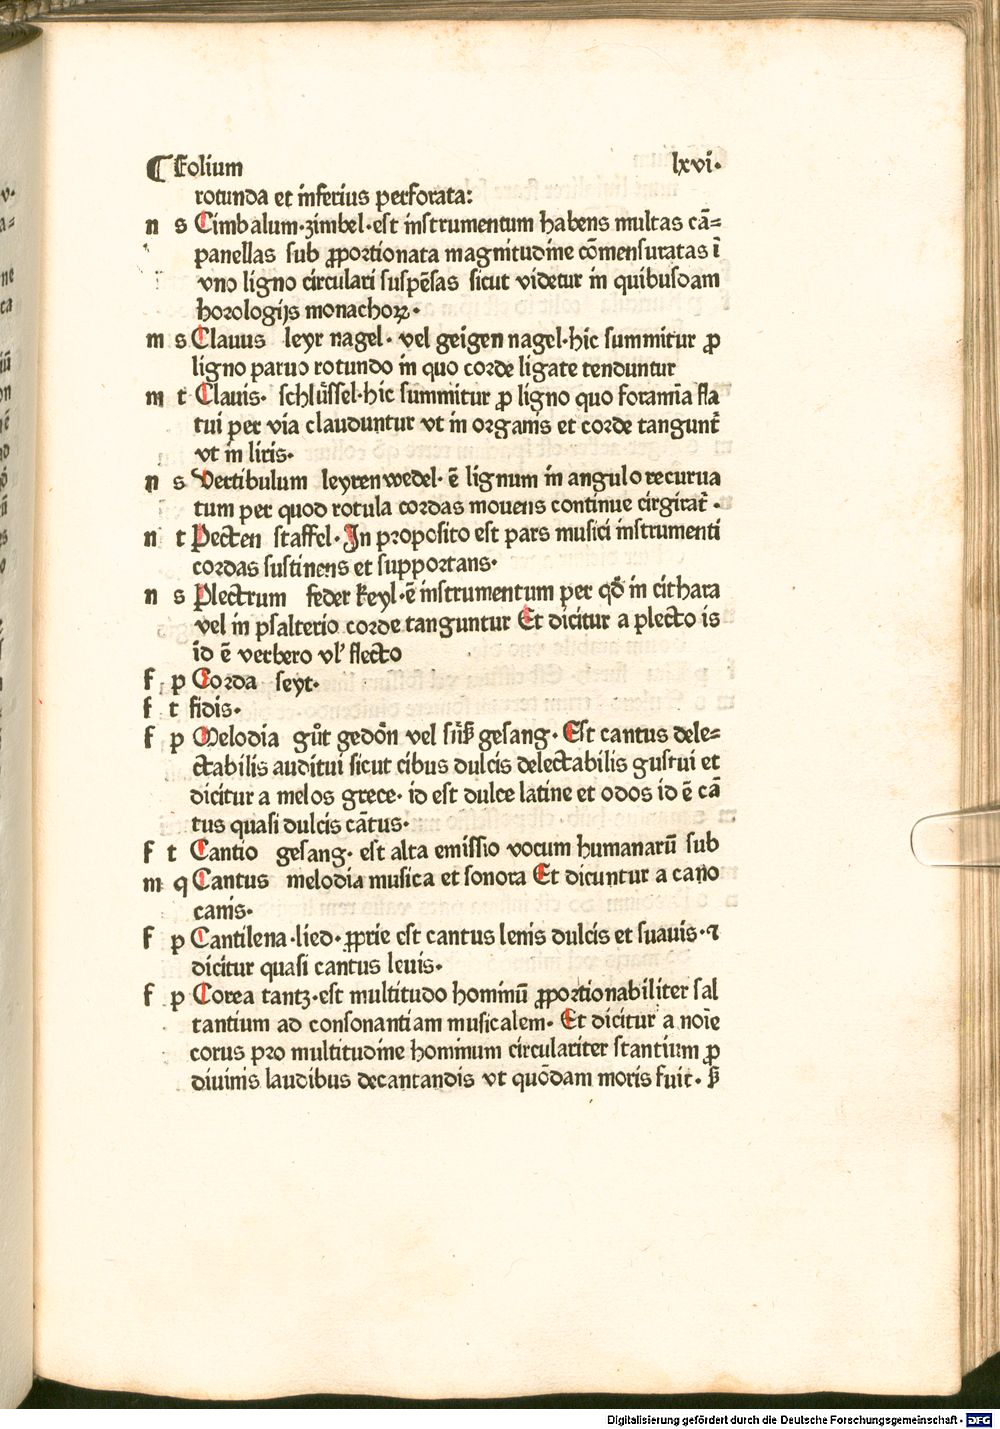 ¶ Folium lxvi.
rotunda et inferius perforata:
n s Cimbalum·zimbel·est instrumentum habens multas cā=
panellas sub ꝓportionata magnitudine cōmensuratas ī
vno ligno circulari suspēsas sicut videtur in quibusdam
horologijs monachoꝝ·
m s Clauus leyr nagel· vel geigen nagel·hic summitur ꝓ
ligno paruo rotundo in quo corde ligate tenduntur
m t Clauis· schlüssel·hic summitur ꝓ ligno quo foramīa fla
tui per via clauduntur vt in organis et corde tangunt᷑
vt in liris·
n s Vertibulum leyrenwedel· ē lignum in angulo recurua
tum per quod rotula cordas mouens continue cirgirat᷑·
n t Pecten staffel· In proposito est pars musici instrumenti
cordas sustinens et supportans·
n s Plectrum feder keyl·ē instrumentum per qđ in cithara
vel in psalterio corde tanguntur Et dicitur a plecto is
id ē verbero vl' flecto
f p Corda seyt·
f t fidis·
f p Melodia gůt gedōn vel süß gesang· Est cantus dele=
ctabilis auditui sicut cibus dulcis delectabilis gustui et
dicitur a melos grece· id est dulce latine et odos id ē cā
tus quasi dulcis cātus·
f t Cantio gesang· est alta emissio vocum humanarū sub
m q Cantus melodia musica et sonora Et dicuntur a cano
canis·
f p Cantilena·lied·ꝓprie est cantus lenis dulcis et suauis·⁊
dicitur quasi cantus leuis·
f p Corea tantz·est multitudo hominū ꝓportionabiliter sal
tantium ad consonantiam musicalem· Et dicitur a noīe
corus pro multitudine hominum circulariter stantium ꝓ
diuinis laudibus decantandis vt quōdam moris fuit· ß
Digitalisierung gefördert durch die Deutsche Forschungsgemeinschaft - DFG